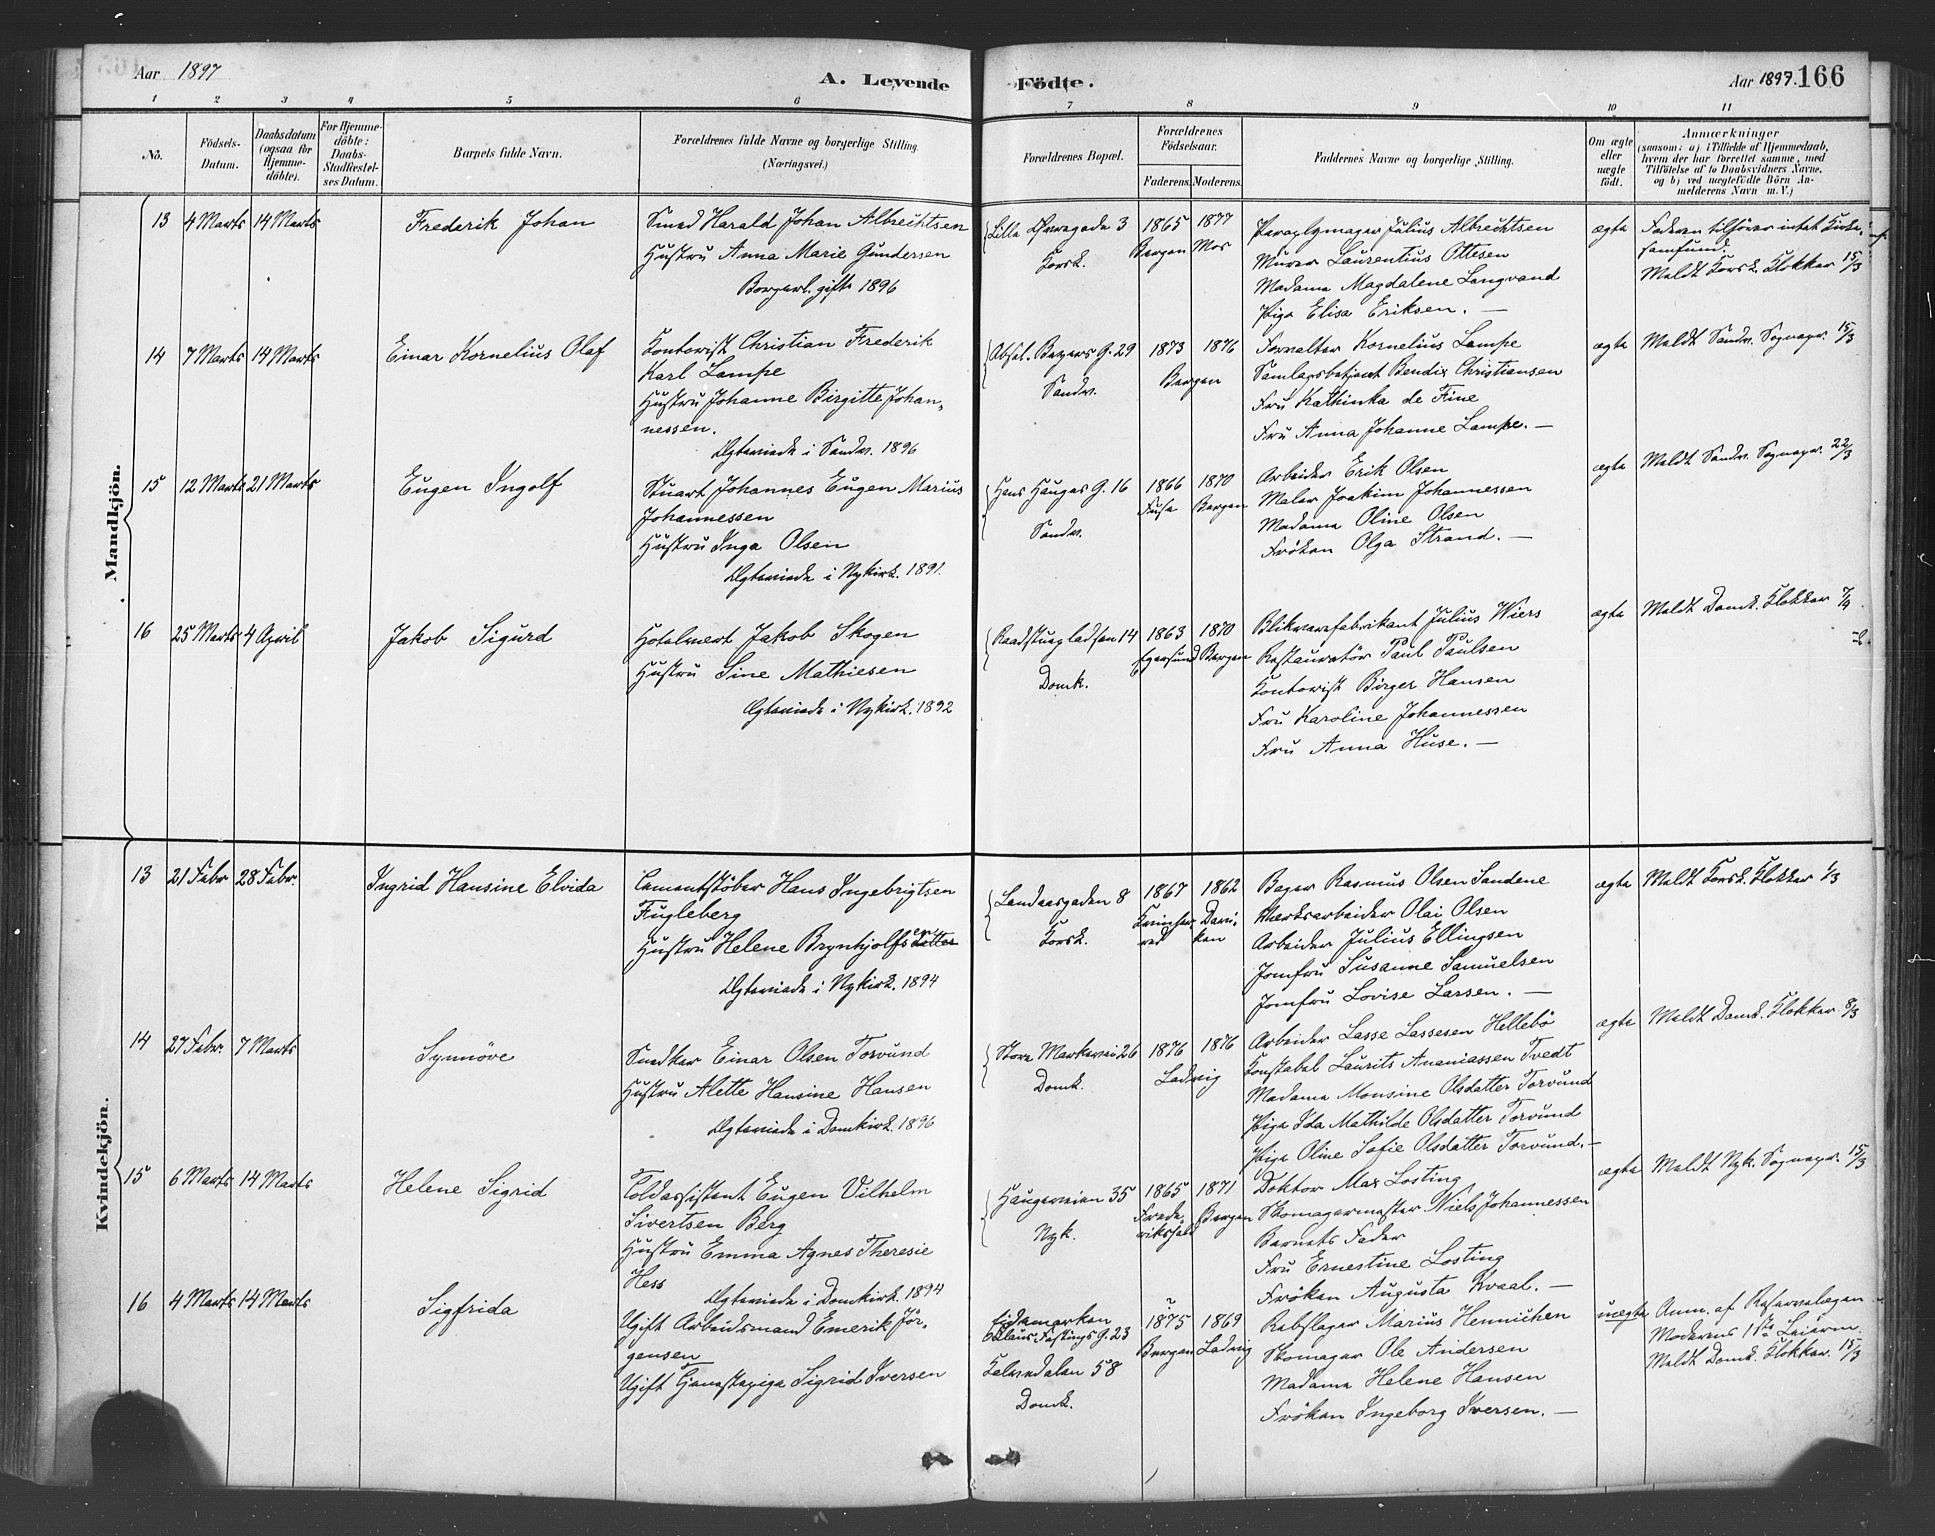 Aar 1897
A. Levende
Födte.
Aar 1897. 166
1 2 3 4 5 6 7 8 9 10 11
No.
Födsels-
Datum.
Daabsdatum
(ogsaa for
Hjemme-
döbte).
For Hjemme-
döbte:
Daabs-
Stadfæstel-
ses Datum.
Barnets fulde Navn.
Forældrenes fulde Navne og borgerlige Stilling.
(Næringsvei.)
Forældrenes Bopæl.
Forældrenes
Födselsaar.
Faderens. Moderens.
Faddernes Navne og borgerlige Stilling.
Om ægte
eller
uægte
födt.
Anmærkninger
(saasom: a) i Tilfælde af Hjemmedaab,
hvem der har forrettet samme, med
Tilföielse af to Daabsvidners Navne,
og b) ved uægtefödte Börn An-
melderens Navn m. V.)
Mandkjön.
13 4 Marts 14 Marts
Frederik Johan
Smed Harald Johan Albrechtsen
Hustru Anna Marie Gundersen
Borgerl. gifte 1896
Lille Øvregade 3
Korsk.
1865 1877
Bergen Mos
Paraplymager Julius Albrechtsen
Murer Laurentius Ottesen
Madame Magdalene Langvand
Pige Elisa Eriksen. —
ægte
Faderen tilhörer intet Kirke-
samfund.
Meldt Korsk. Klokker 15/3
14 7 Marts 14 Marts
Einar Kornelius Olaf
Kontorist Christian Frederik
Karl Lampe
Hustru Johanne Birgitte Johan-
nessen.
Ægteviede i Sandv. 1896
Absal. Beyers G. 29
Sandv.
1873 1876
Bergen
Forvalter Kornelius Lampe
Samlagsbetjent Bendix Christiansen
Fru Kathinka de Fine
Fru Anna Johanne Lampe. —
ægte
Meldt Sandv. Sognepr. 15/3
15 12 Marts 21 Marts
Eugen Ingolf
Stuart Johannes Eugen Marius
Johannessen
Hustru Inga Olsen
Ægteviede i Nykirk. 1891.
Hans Hauges G. 16
Sandv.
1866 1870
Fuse Bergen
Arbeider Erik Olsen
Maler Joakim Johannessen
Madame Oline Olsen
Fröken Olga Strand. —
ægte
Meldt Sandv. Sognepr. 22/3
16 25 Marts 4 April
Jakob Sigurd
Hotelvert Jakob Skogen
Hustru Sine Mathiesen
Ægteviede i Nykirk. 1892
Raadstuepladsen 14
Domk.
1863 1870
Egersund Bergen
Blikvarefabrikant Julius Wiers
Restauratör Paul Paulsen
Kontorist Birger Hansen
Fru Karoline Johannessen
Fru Anna Huse. —
ægte
Meldt Domk. Klokker 7/4
Kvindekjön.
13 21 Febr 28 Febr.
Ingrid Hansine Elvida
Cementstöber Hans Ingebrigtsen
Fugleberg
Hustru Helene Brynhjolfsen
Ægteviede i Nykirk. 1894
Landaasgaden 8
Korsk.
1867 1862
Bager Rasmus Olsen Sandene
Værksarbeider Olai Olsen
Arbeider Julius Ellingsen
Jomfru Susanne Samuelsen
Jomfru Lovise Larsen. —
ægte
Meldt Korsk. Klokker 1/3
14 27 Febr. 7 Marts
Synnöve
Snedker Einar Olsen Torvund
Hustru Alette Hansine Hansen
Ægteviede i Domkirk. 1896
Store Markevei 26
Domk.
1876 1876
Ladvig
Arbeider Lasse Lassesen Hellebö
Konstabel Laurits Ananiassen Tvedt
Madame Monsine Olsdatter Torvund
Pige Ida Mathilde Olsdatter Torvund
Pige Oline Sofie Olsdatter Torvund. —
ægte
Meldt Domk. Klokker 8/3
15 6 Marts 14 Marts
Helene Sigrid
Toldassistent Eugen Vilhelm
Sivertsen Berg
Hustru Emma Agnes Theresie
Hess
Ægteviede i Domkirk. 1894
Haugeveien 35
Nyk.
1865 1871
Frede- Bergen
rikshald
Doktor Max Losting
Skomagermester Niels Johannessen
Barnets Fader
Fru Ernestine Losting
Fröken Augusta Kvaal. —
ægte
Meldt Nyk. Sognepr. 15/3
16 4 Marts 14 Marts
Sigfrida
Ugift Arbeidsmand Emerik Jör-
gensen
Ugift Tjenestepige Sigrid Iversen
Eidemarken
Claus Fastings G. 23
Kalvedalen 58
Domk.
1875 1869
Bergen Ladvig
Rebslager Marius Hennichen
Skomager Ole Andersen
Madame Helene Hansen
Fröken Ingeborg Iversen. —
uægte
Anm. af Reservelægen
Moderens 1ste Leierm.
Meldt Domk. Klokker. 15/3